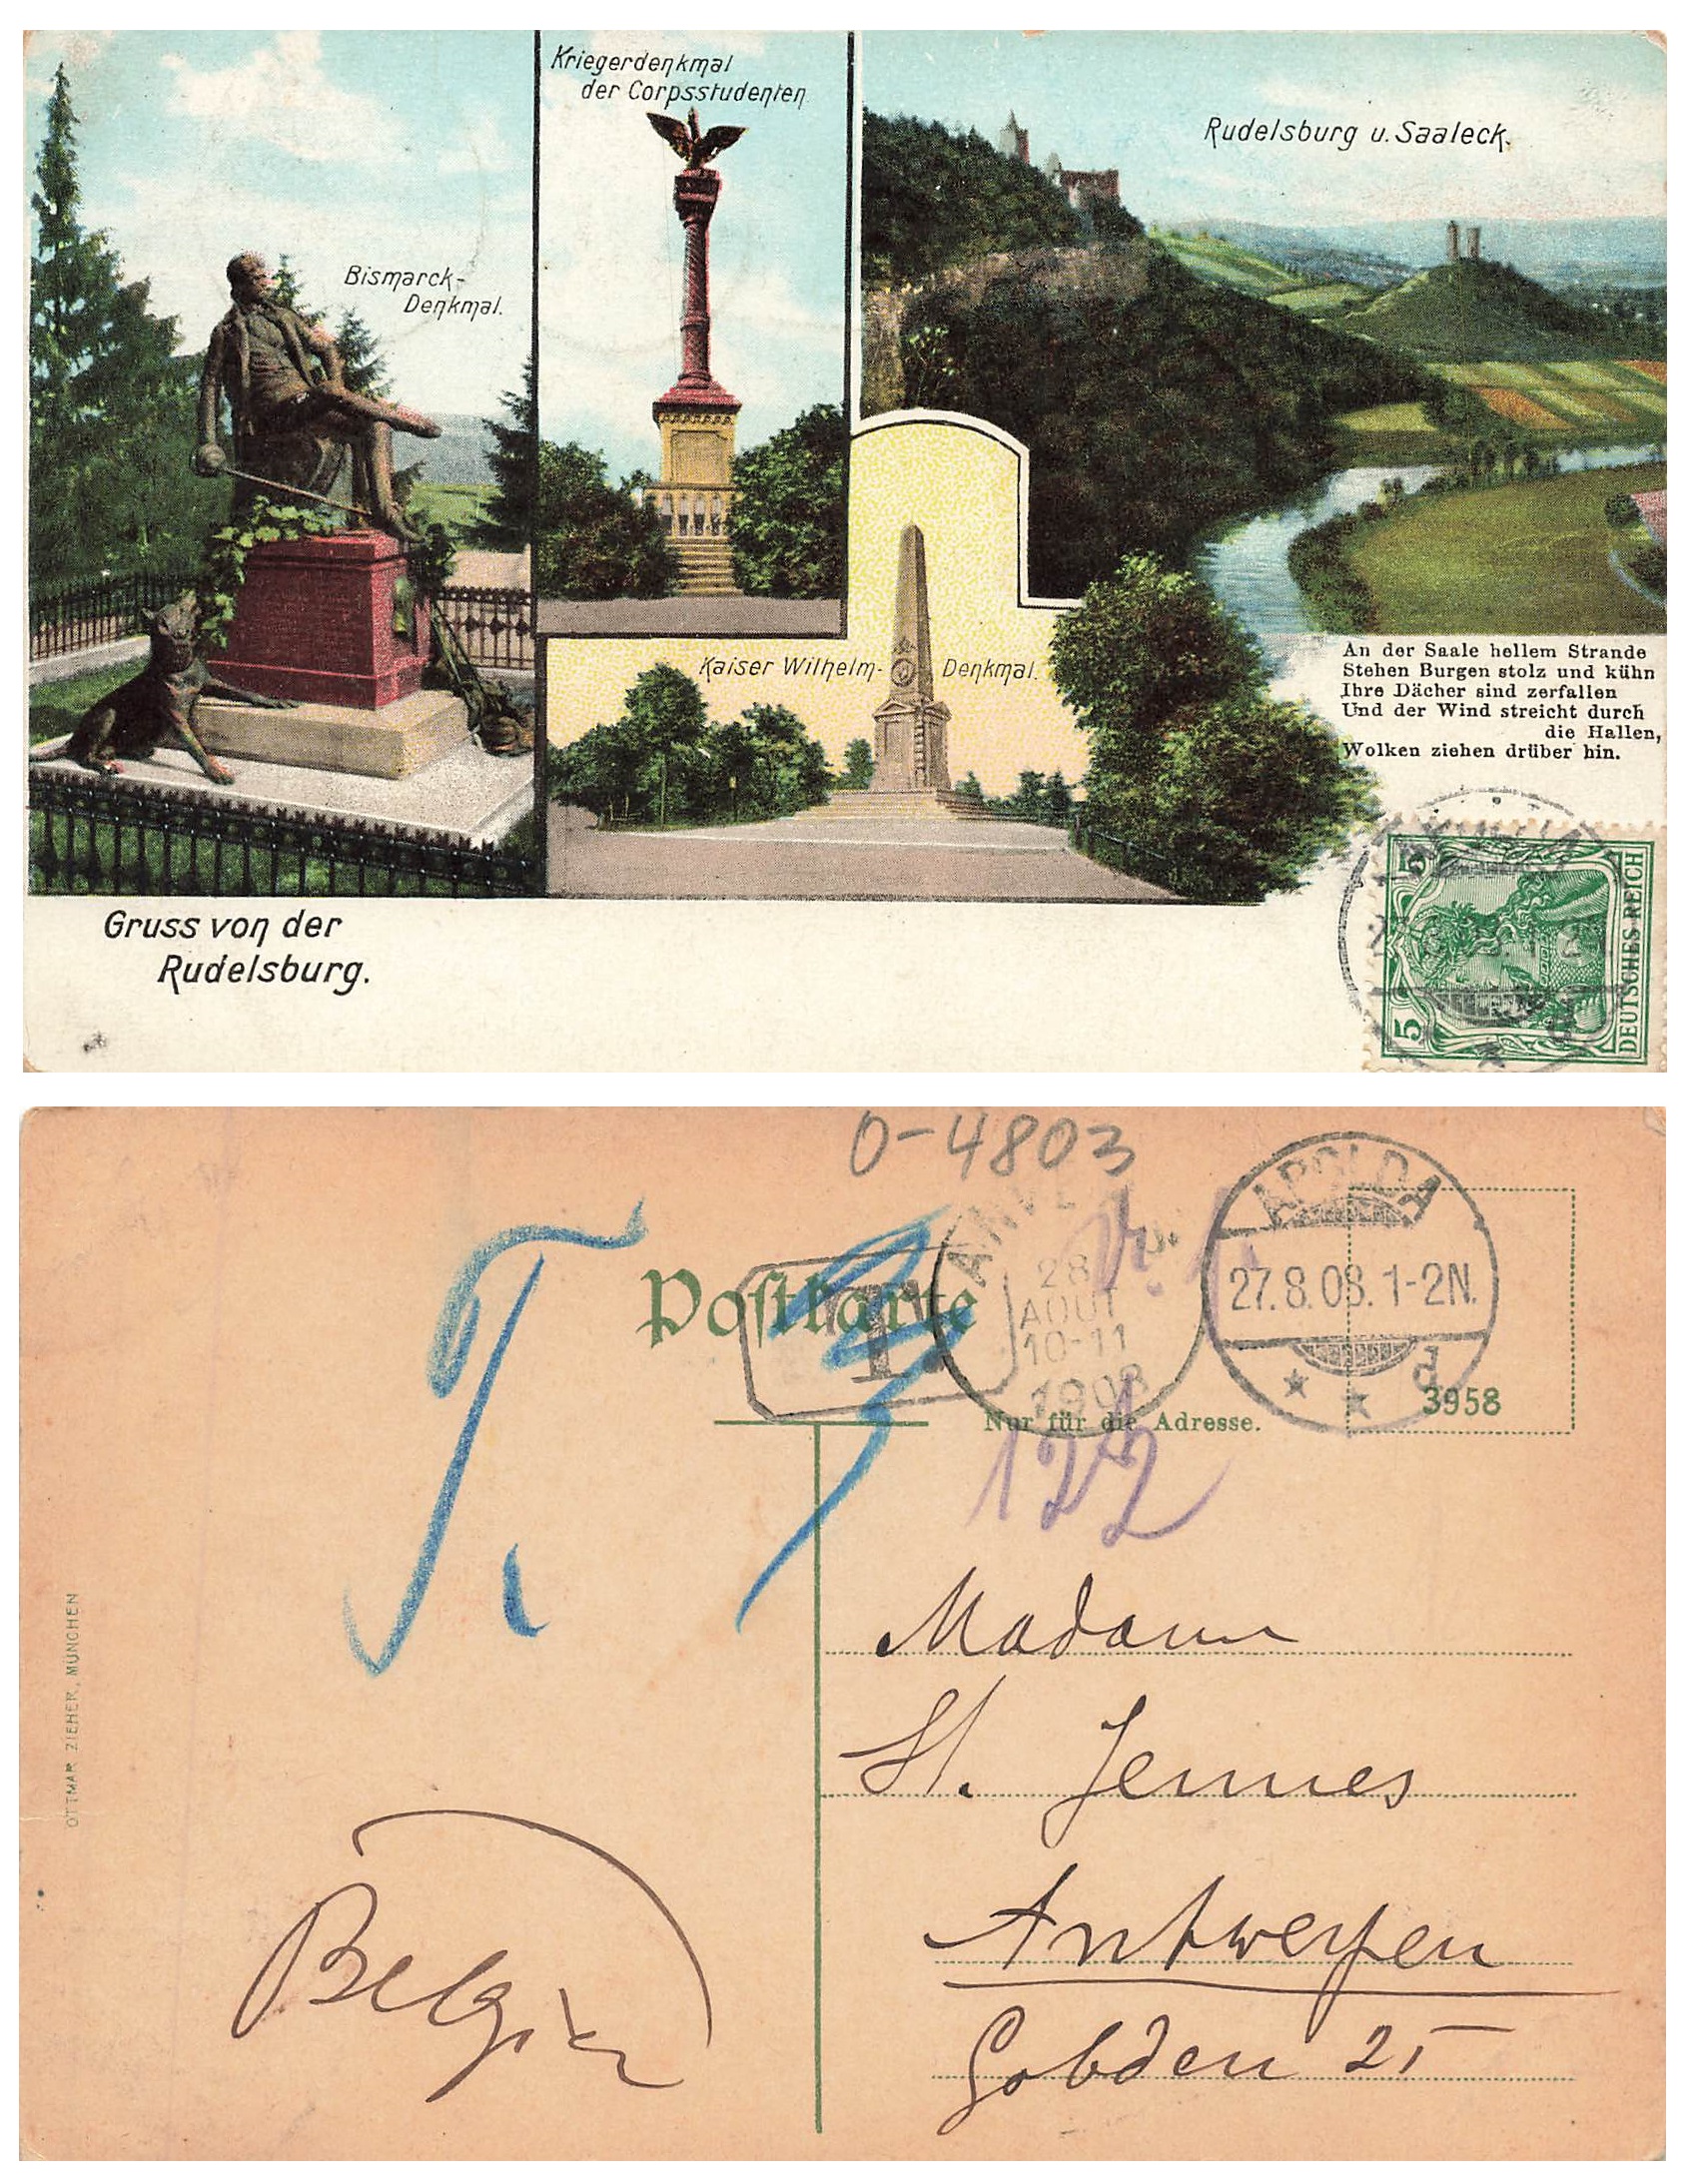 Kriegerdenkmal
der Corpsstudenten
Rudelsburg u. Saaleck.
Bismarck-
Denkmal.
Kaiser Wilhelm-Denkmal.
An der Saale hellem Strande
Stehen Burgen stolz und kühn
Ihre Dächer sind zerfallen
Und der Wind streicht durch
die Hallen,
Wolken ziehen drüber hin.
Gruss von der
Rudelsburg.
5
5
DEUTSCHES REICH
0-4803
T.
Postkarte
T
28
AOUT
10-11
1908
APOLDA
27.8.08.1-2N.
d
3958
Nur für die Adresse.
122
OTTMAR ZIEHER, MÜNCHEN
Madame
St. Jennes
Antwerpen
25
Belgien